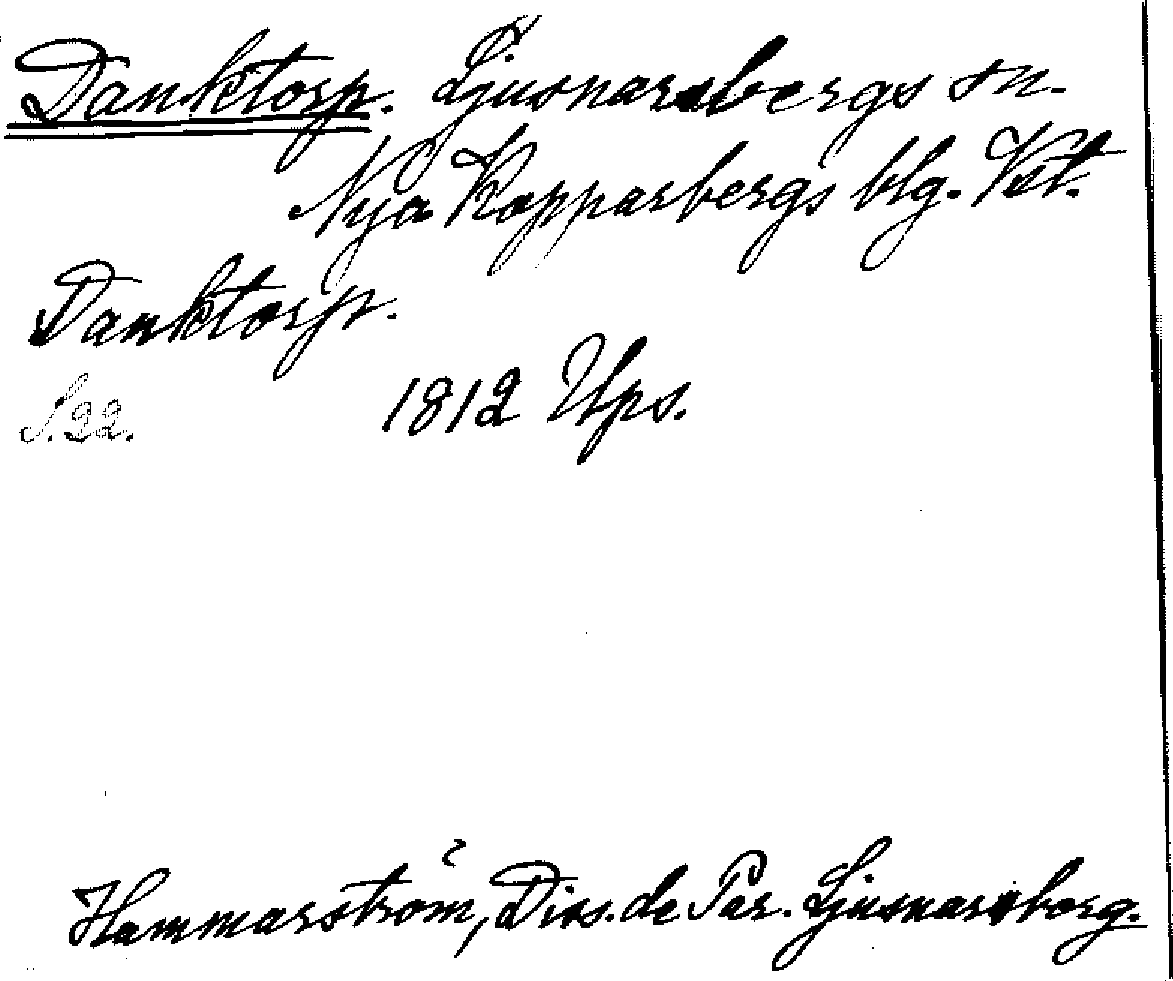 Danktorp. Ljusnarsbergs sn.
Nya Kopparbergs blg. Vst.
Danktorp.
S. 22. 1812 Ups.
Hammarström, Diss. de Par. Ljusnarsberg.